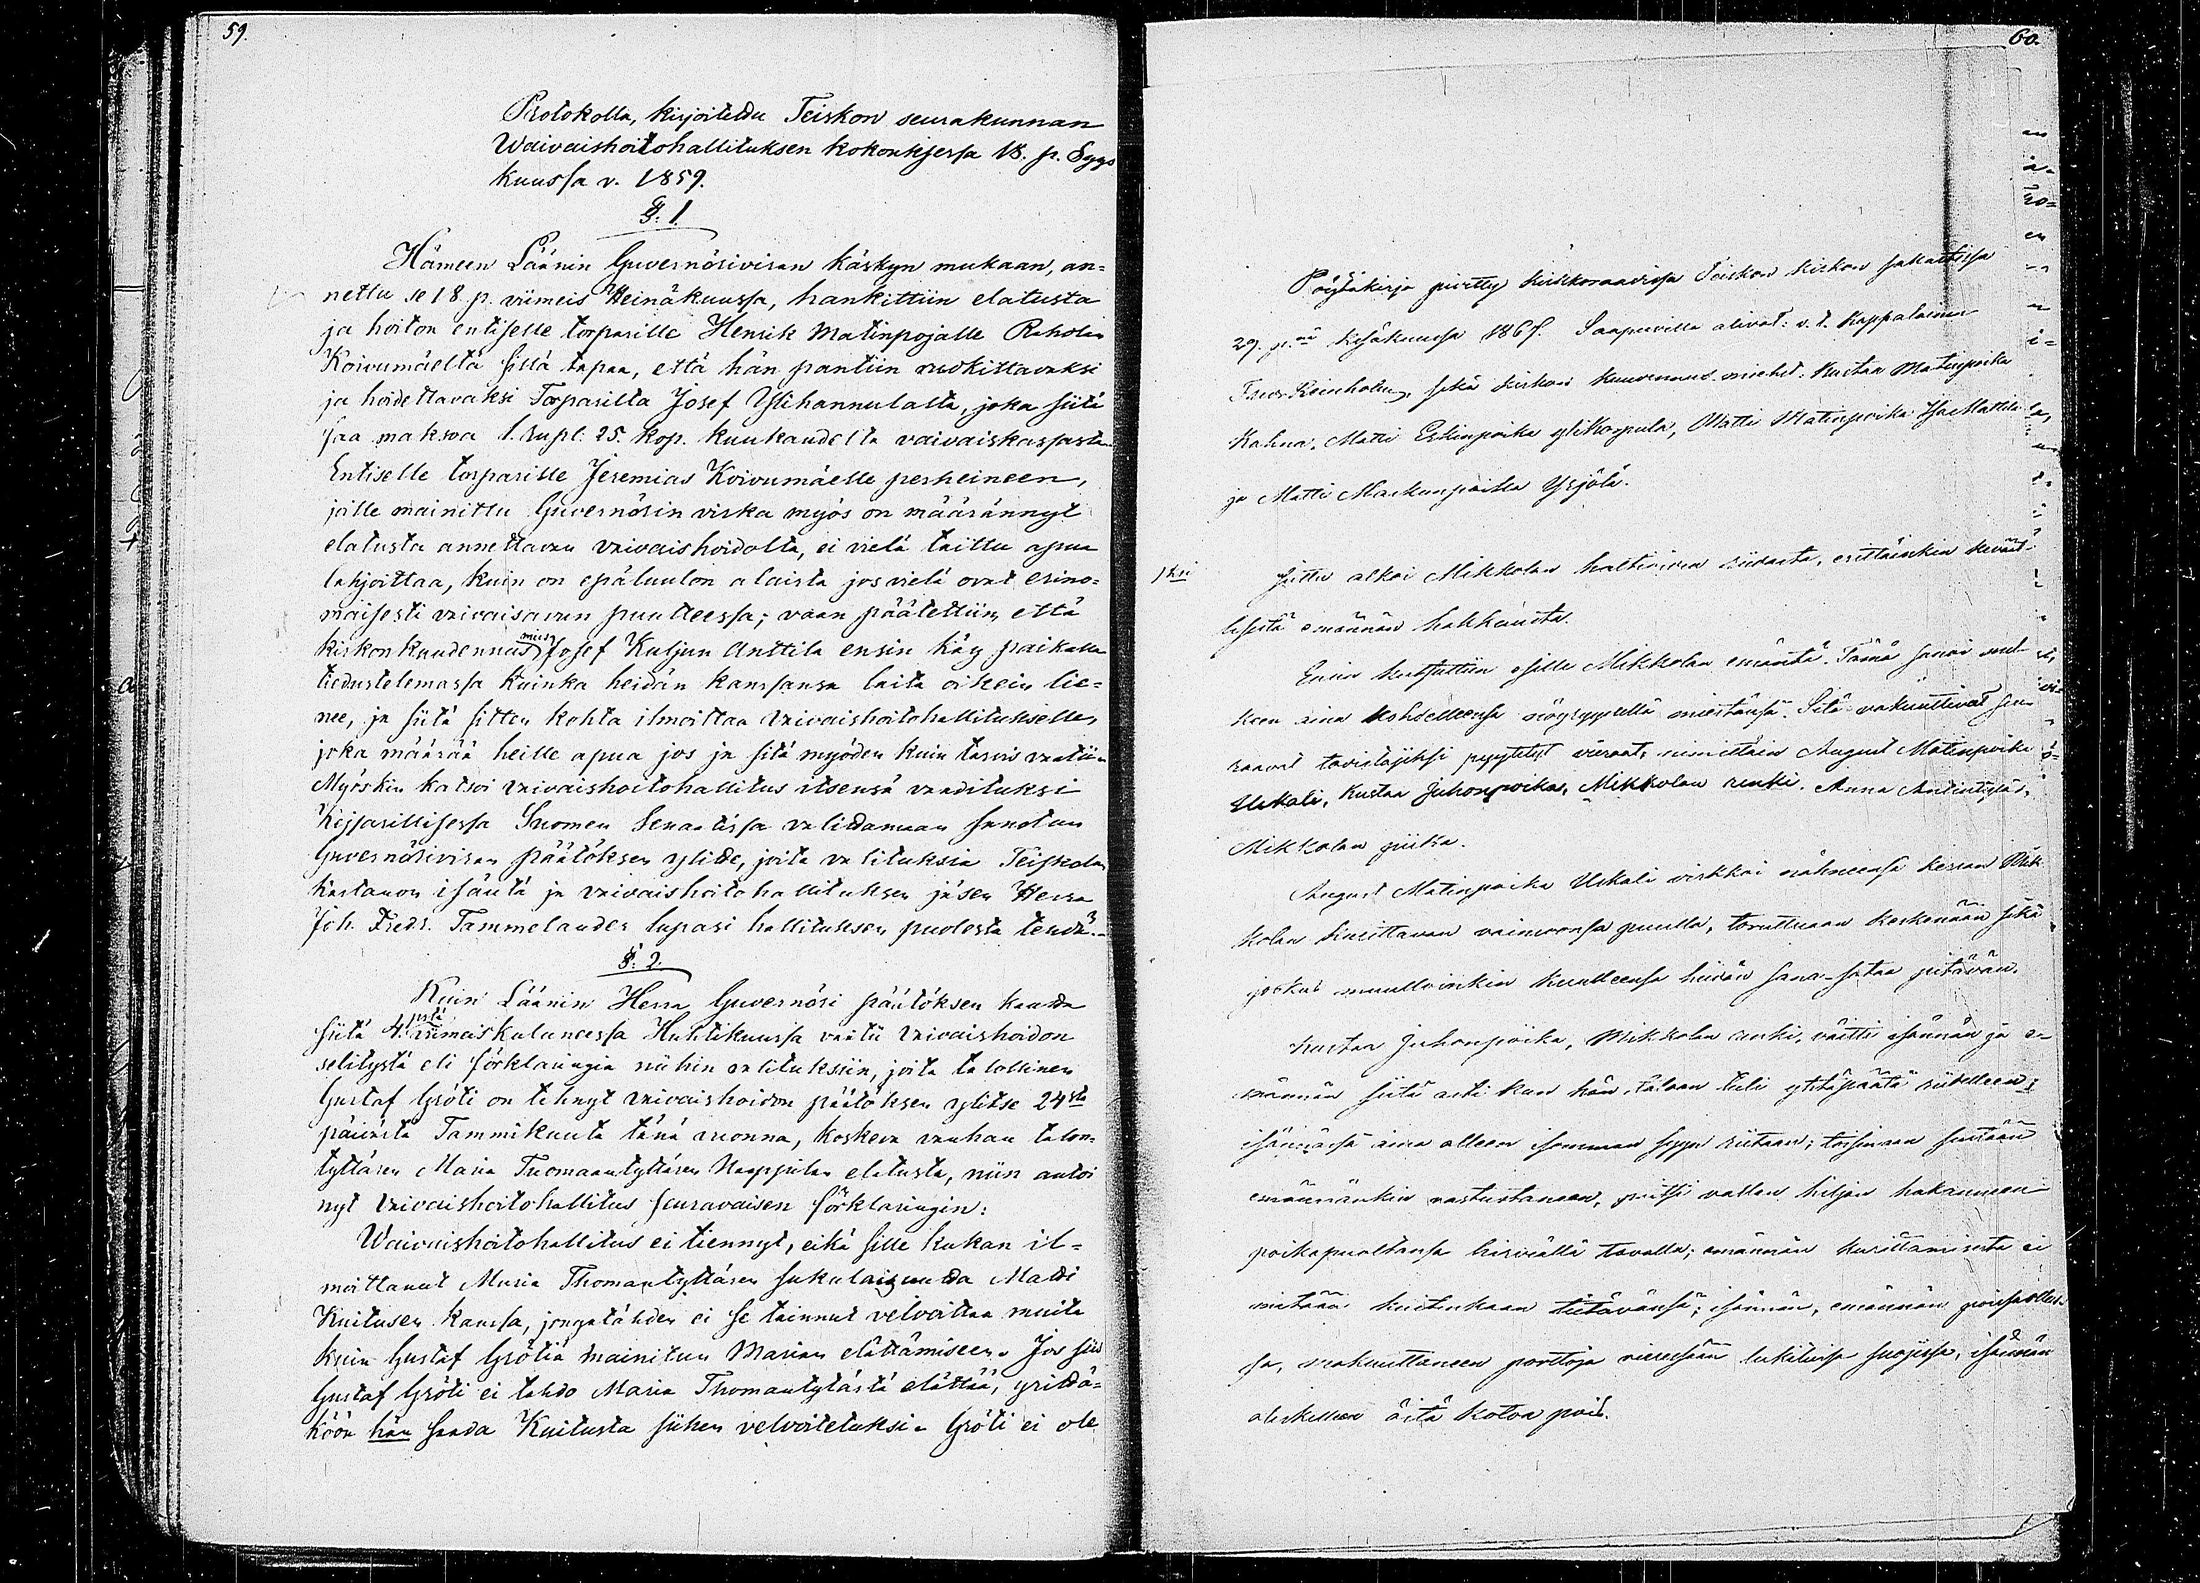 59.
Protokolla, kirjoitettu Teiskon seurakunnan
Waivaishoitohallituksen kokouksessa 18. p. Syys
kuussa v. 1859.
§. 1.
Hämeen Läänin Guvernöriviran käskyn mukaan, an=
nettu se 18. p. viimeis Heinäkuussa, hankittiin elatusta
ja hoiton entiselle torparille Henrik Matinpojalle Rahola
Koivumäeltä sillä tapaa, että hän pantiin ruokittavaksi
ja hoidettavaksi Torparilta Josef Ylihannulalta, joka siitä
saa maksoa 1. rupl. 25. kop. kuukaudelta vaivaiskassasta
Entiselle torparille Jeremias Koivumäelle perheineen,
jolle mainittu Guvernörin virka myös on määrännyt
elatusta annettavan vaivaishoidolta, ei vielä taittu apua
lahjoittaa, kuin on epäluulon alaista jos vielä ovat erino=
maisesti vaivaisavun puutteessa; vaan päätettiin että
kirkon kuudennusmies Josef Kuljun Anttila ensin käy paikalla
tiedustelemassa kuinka heidän kanssansa laita oikein lie=
nee, ja siitä sitten kohta ilmoittaa vaivaishoitohallitukselle,
joka määrää heille apua jos ja sitä myöden kuin tarvis vaatii.
Myöskin katsoi vaivaishoitohallitus itsensä vaadituksi
Keisarillisessa Suomen Senaatissa valittamaan sanotun
Guvernöriviran päätöksen ylitse, joita valituksia Teiskolan
kartanon isäntä ja vaivaishoitohallituksen jäsen Herra
Joh. Fredr. Tammelander lupasi hallituksen puolesta tehdä.
§. 2.
Kuin Läänin Herra Guvernöri päätöksen kautta
siitä 4.stä viimeis kuluneessa Huhtikuussa vaatii vaivaishoidon
selitystä eli förklaringia niihin valituksiin, joita talollinen
Gustaf Gröti on tehnyt vaivaishoidon päätöksen ylitse 24stä
päivästä Tammikuuta tänä vuonna, koskeva vanhan talon=
tyttären Maria Tuomaantyttären Naappilan elatusta, niin antoi
nyt vaivaishoitohallitus seuravaisen förklaringin:
Waivaishoitohallitus ei tiennyt, eikä sille kukan il=
moittanut Maria Thomantyttären sukulaisuutta Matti
Kuitusen kanssa, jongatähden ei se tainnut velvoittaa muita
kuin Gustaf Grötiä mainitun Marian elättämiseen. Jos siis
Gustaf Gröti ei tahdo Maria Thomantytärtä elättää, yrittä=
köön hän saada Kuitusta siihen velvoitetuksi. Gröti ei ole
60.
Pöytäkirja pidetty kirkkoraadissa Teiskon kirkon sakastissa
29. p.nä Kesäkuussa 1865. Saapuvilla olivat: v. t. Kappalainen
Reinholm, sekä kirkon kuudennus-miehet. Kustaa Matinpoika
Kahna, Matti Erkinpoika Ylikarpula, Matti Matinpoika Iso Mattila
ja Matti Markunpoika Yrjölä.
1ksi Juttu alkoi Mikkolan haltiaven riidasta, erittäinkin
emännän hakkausta.
Ensin kutsuttiin esille Mikkolan emäntä. Tämä sanoi
aina kohdelleensa nöyryydellä miestänsä. Sitä vakuuttivat
todistajiksi pyydetyt vieraat, nimittäin August Matinpoika
Uskali, Kustaa Juhonpoika, Mikkolan renki. Anna Antintytär,
Mikkolan piika.
August Matinpoika Uskali virkkoi nähneensä kerran Mik
kolan kurittavan vaimoansa puulla, toruttuaan keskenään sekä
joskus muulloinkin kuulleensa heidän sana-sotaa pitävän.
Kustaa Juhonpoika, Mikkolan renki, väitti isännän ja e=
männän siitä asti kun hän taloon tuli yhtäpäätä riidelleen;
isännässä aina olleen isomman syyn riitaan; toisinaan
emännänkin vastustaneen, vallan hiljan hakanneen
poikapuoltansa hirveällä tavalla; emännän kurittamisesta ei
mitään kuitenkaan tietävänsä; isännän, emännän poissaolles
sa, makuuttaneen porttoja vieressään lukituissa suojissa, isännän
äitä kotoa pois.